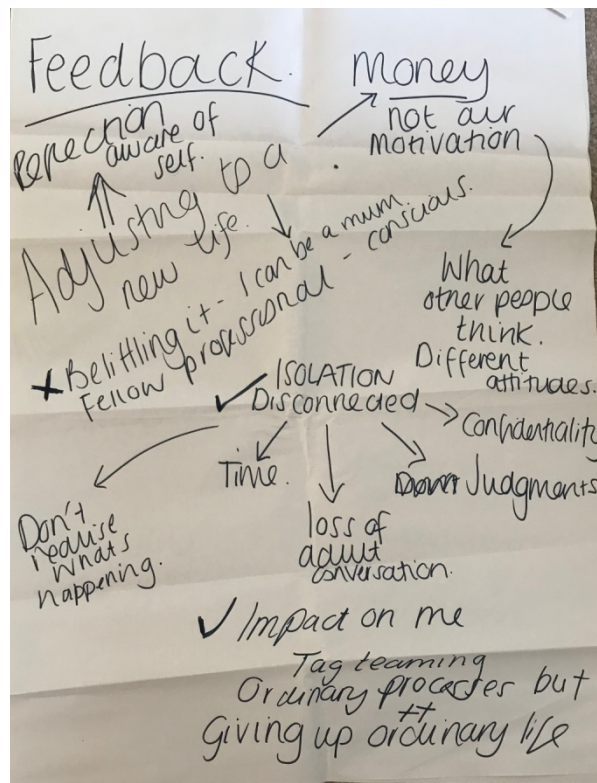 Feedback.
Money
not our
motivation
Reflection
aware of
self.
Adjusting to a
new life.
Belittling it - I can be a mum.
Fellow professional - conscious.
What
other people
think.
Different
attitudes.
ISOLATION
Disconnected
Confidentiality
Time.
Judgments
Don't
realise
what's
happening.
loss of
adult
conversation.
Impact on me
Tag teaming
Ordinary processes but
++
Giving up ordinary life